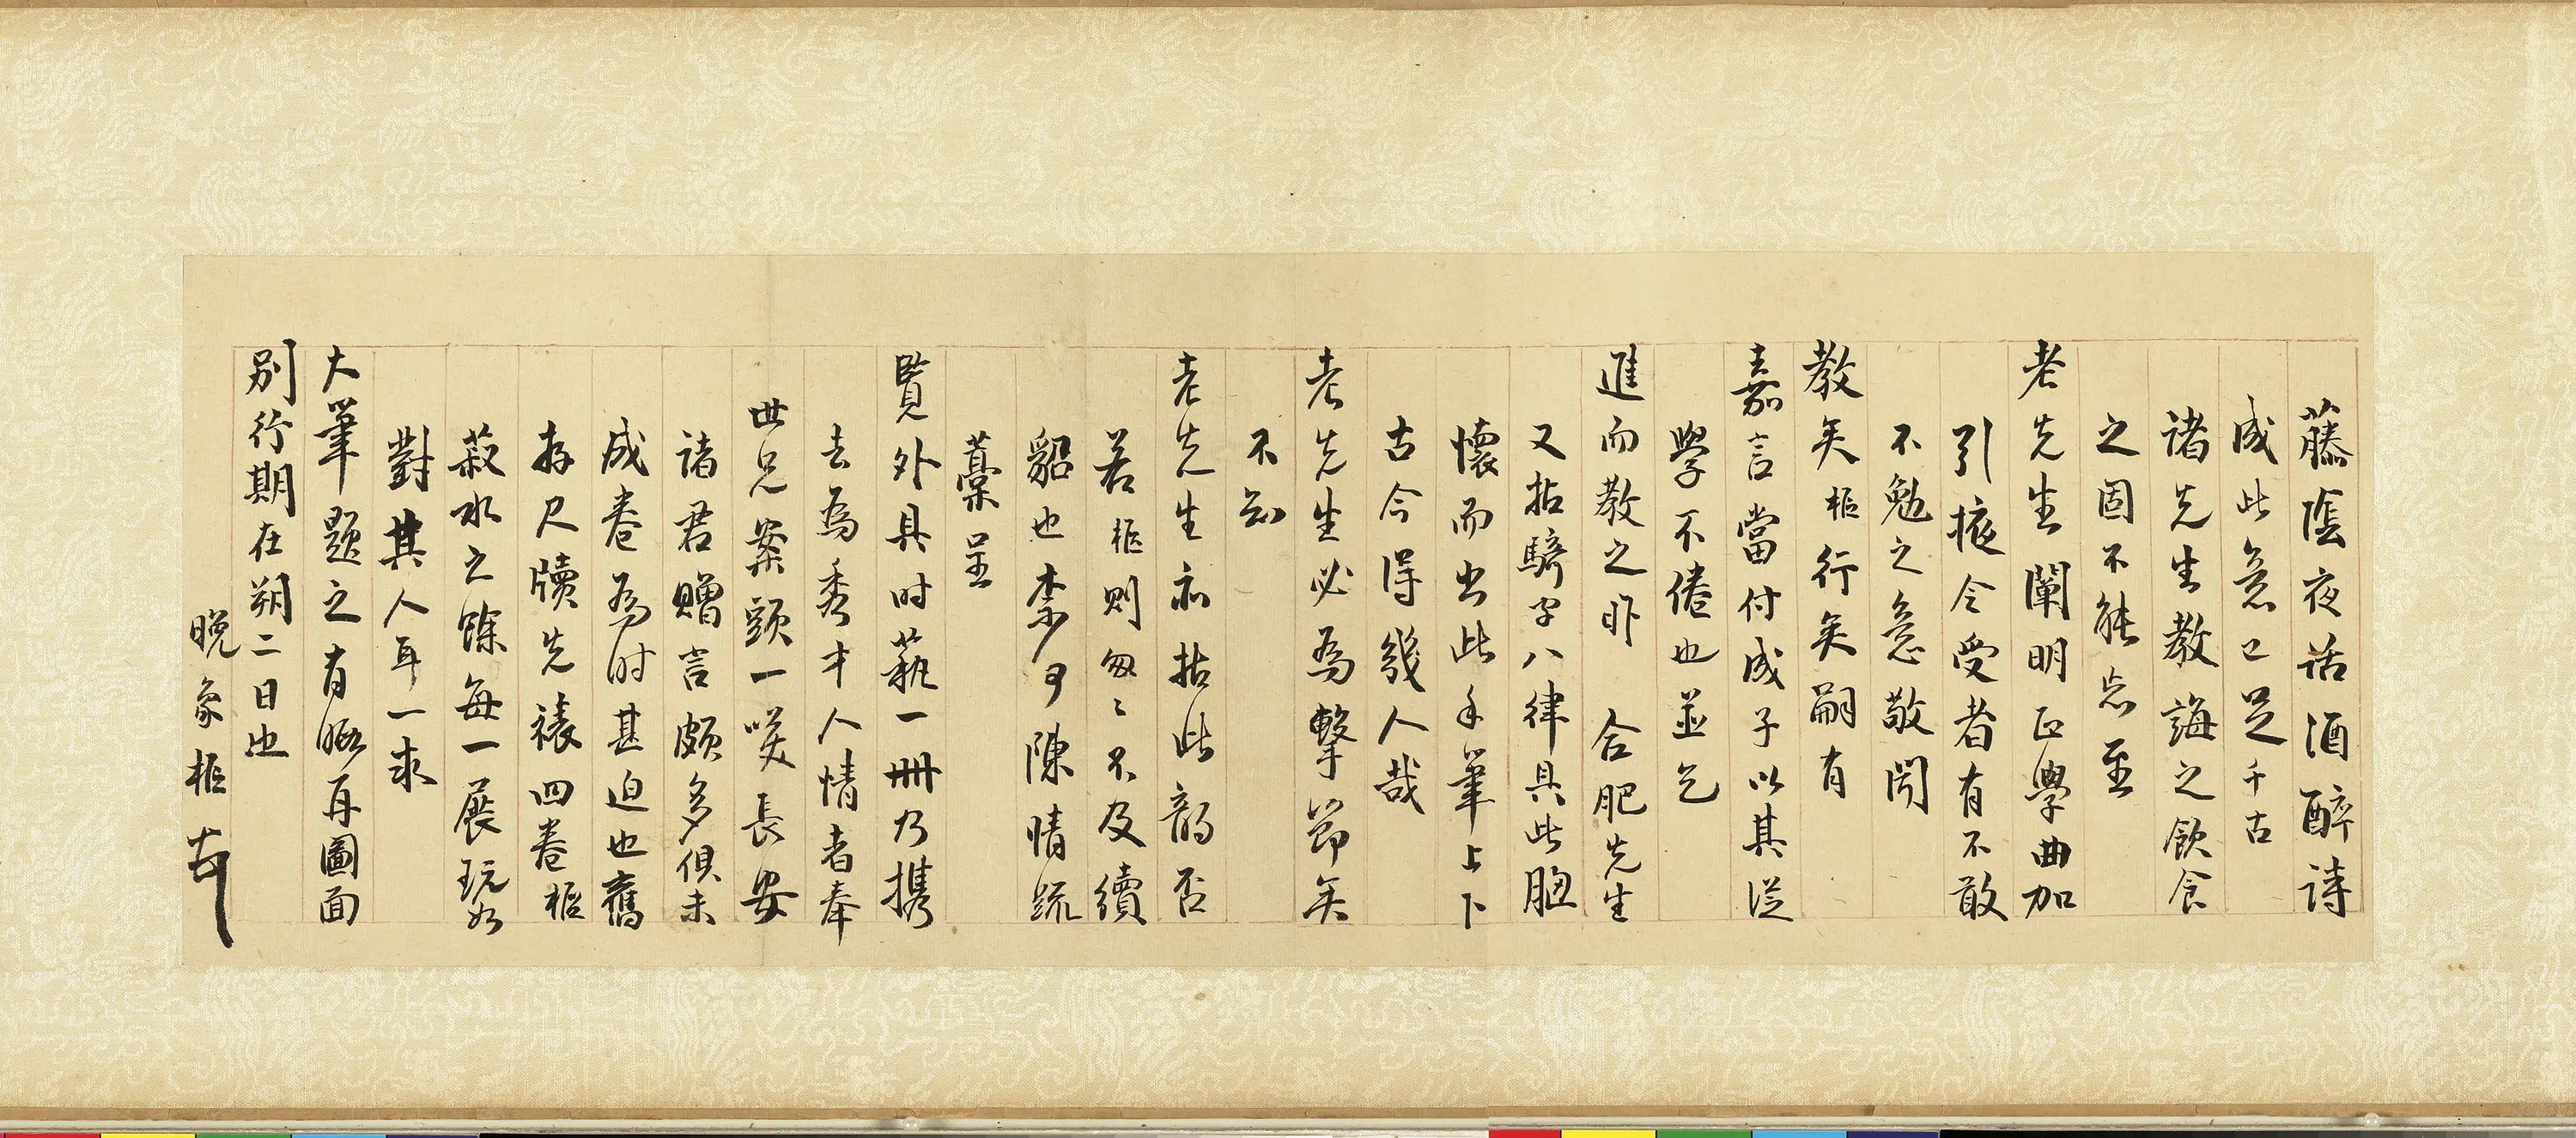 藤陰夜話酒醉詩
成此意已足千古
諸先生教誨之飲食
之固不能忘至
老先生闡明正學曲加
引掖令受者有不敢
不勉之意敬聞
教矣樞行矣嗣有
嘉言當付成子以其從
學不倦也並乞
進而教之昨 合肥先生
又拈騎字八律具此胸
懷而出此手筆上下
古今得幾人哉
老先生必為擊節矣
不知
老先生亦拈此韻否
若樞則匆匆不及續
貂也 陳情疏
藁呈
覽外具时藝一冊乃攜
去為秀才人情者奉
世兄案頭一笑長安
諸君贈言頗多俱未
成卷為时甚迫也舊
存尺牘先裱四卷樞
菽水之餘每一展玩如
對其人耳一求
大筆題之有暇再圖面
別行期在朔二日也
晚象樞